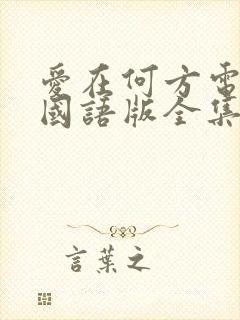 愛在何方電
國語版全集
言葉之